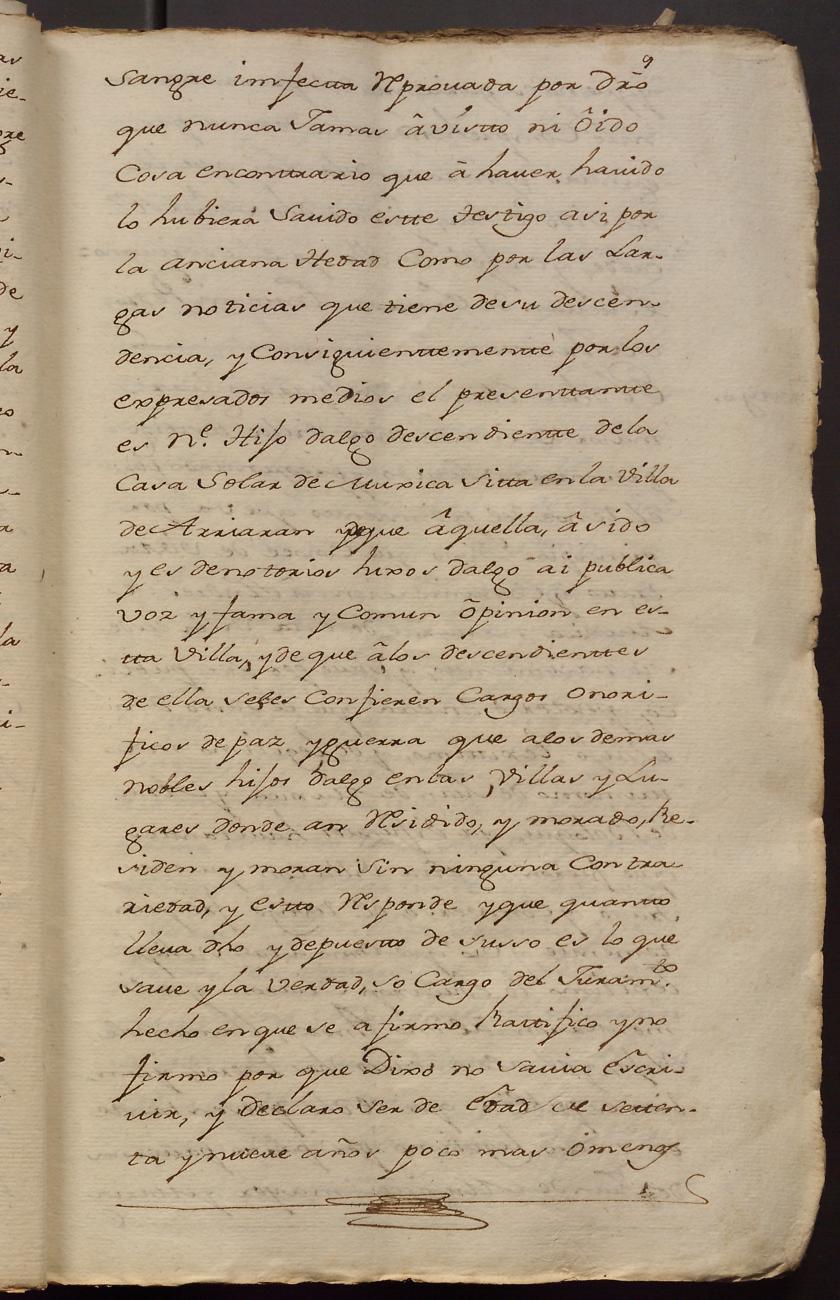 9
Sangre imfectta Reprouada por dr̃o
que nunca Jamas âvistto ni ôido
Cosa enconttrario que â hauer hauido
lo hubiera Sauido estte testigo asi por
la anciana Hedad Como por las Lar-
gas noticias que tiene desu descen-
dencia, y Consiguienttementte por los
expresados medios el presenttantte
es Ne. Hijo dalgo descendientte dela
Casa Solar de Muxica Sitta enla Villa
de Arriaran yque âquella, â sido
y es denotorios hixos dalgo ai publica
voz y fama y Comun ôpinion en es-
tta Villa, y de que âlos descendienttes
de ella seles Confieren Cargos onori-
ficos de paz yguerra que alos demas
nobles hijos dalgo enlas Villas y Lu-
gares donde an Residido, y morado, Re-
siden y moran sin ninguna Contra-
riedad, y estto Responde yque quantto
lleua dho y depuestto de susso es lo que
saue y la verdad, so Cargo del Juramto.
hecho enque se afirmo Rattifico yno
firmo por que Dixo no sauia escri-
uir, y Declaro ser de edad de setten-
ta ynueue años poco mas ômenos